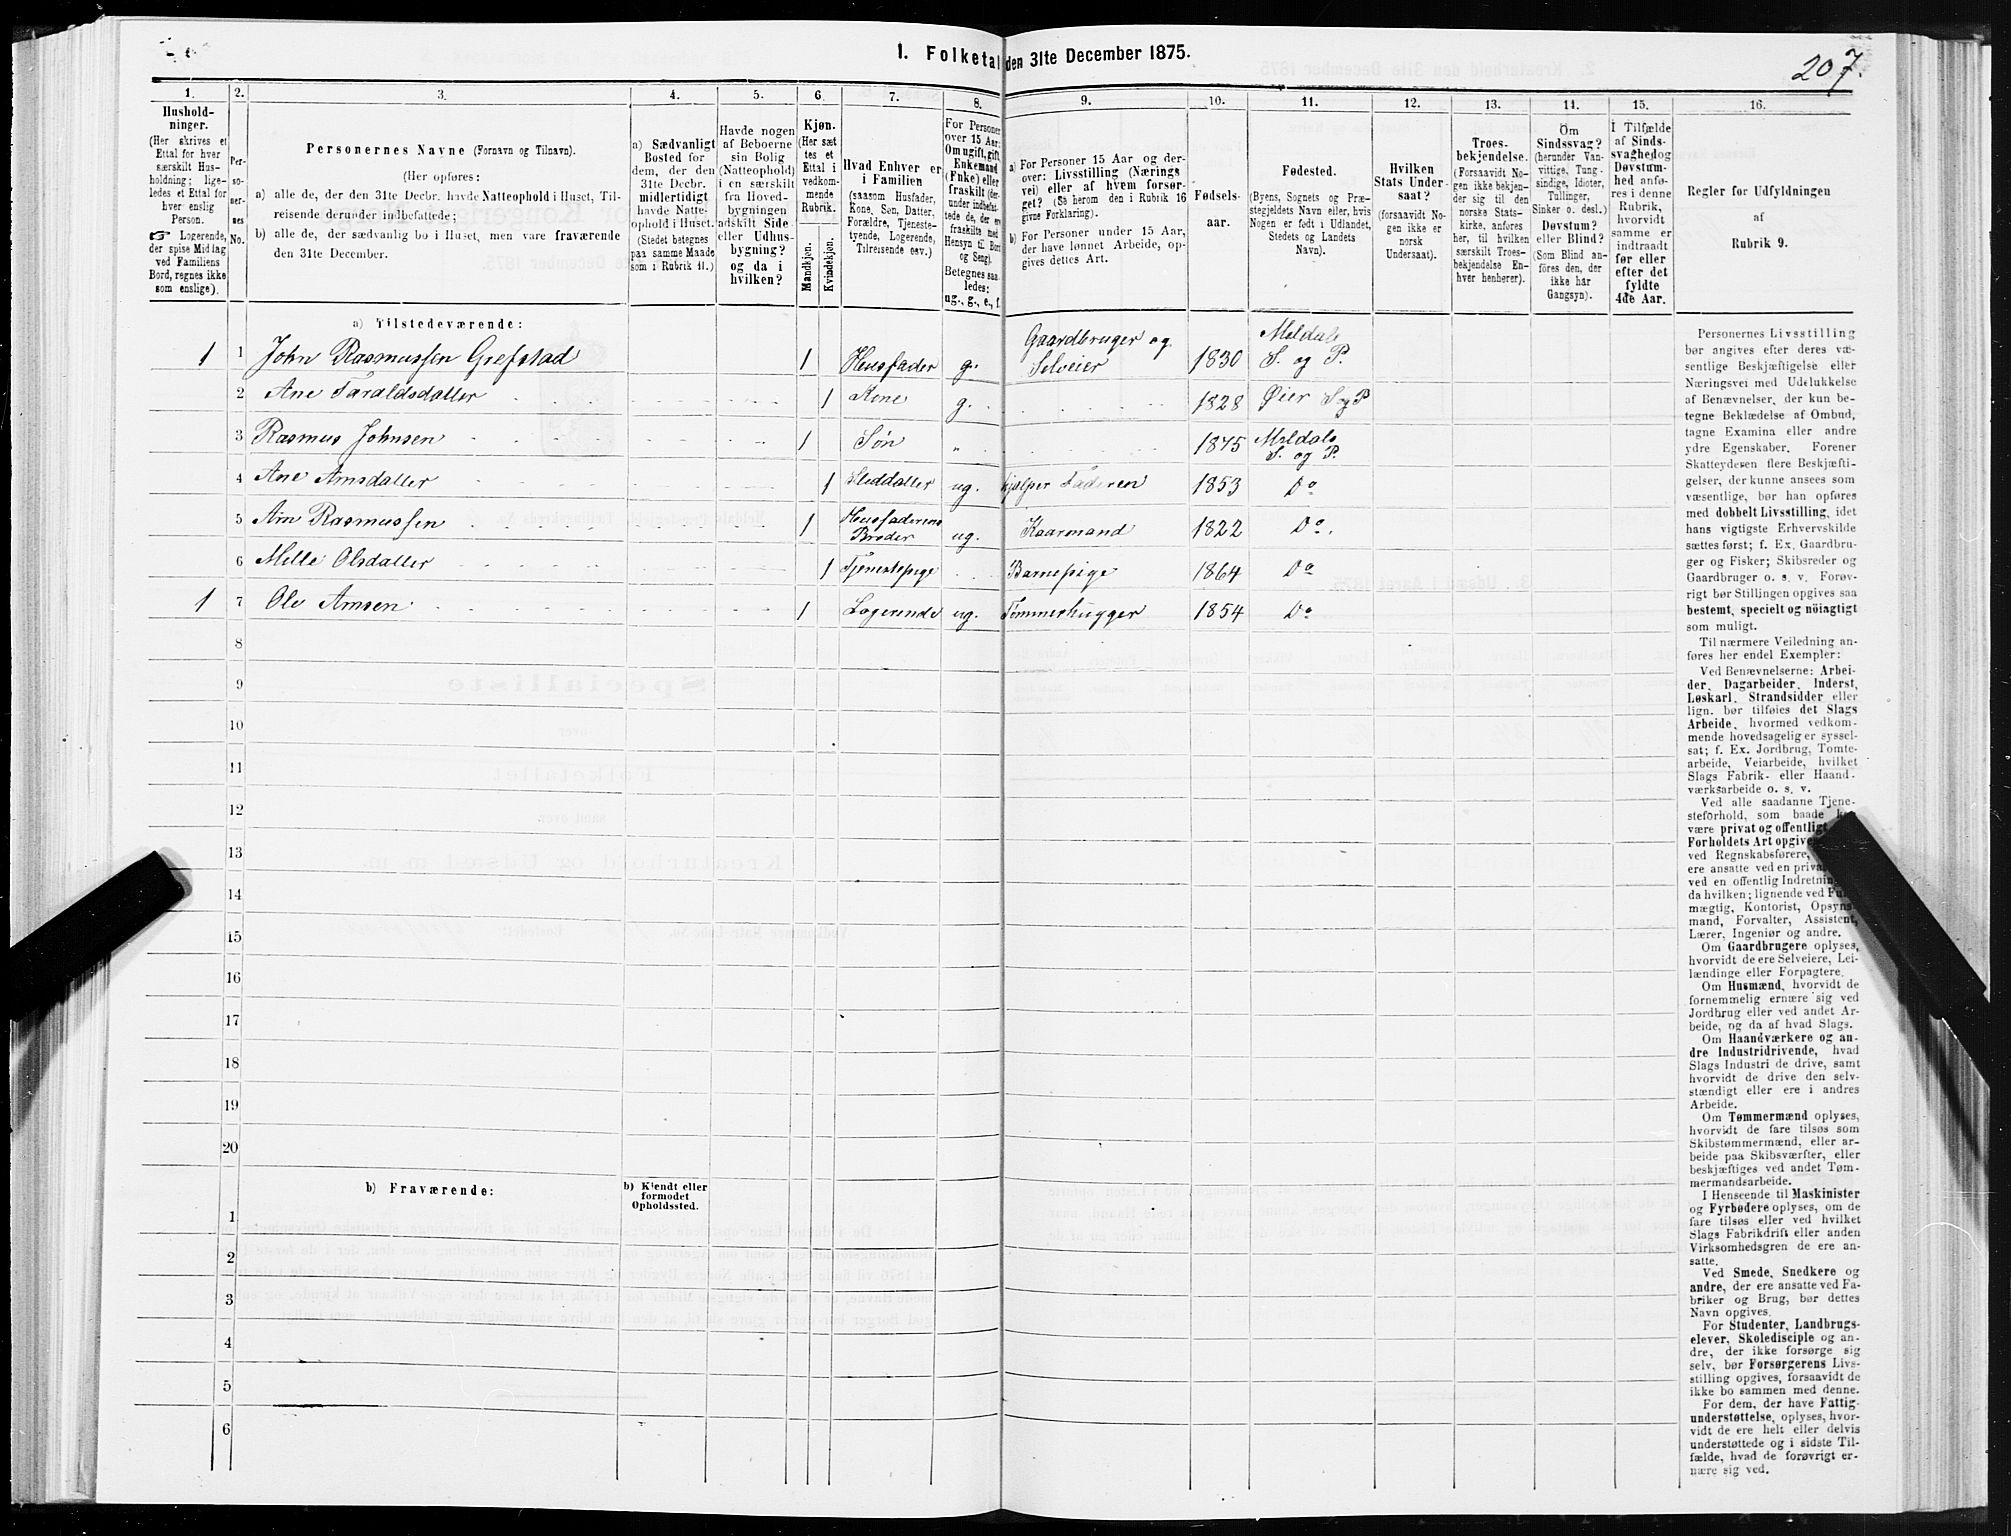 1. Folketal den 31te December 1875.
207.
1. 2. 3. 4. 5. 6. 7. 8. 9. 10. 11. 12. 13. 14. 15. 16.
Husholdninger. (Her skrives et Ettal for hver særskilt Husholdning; ligeledes et Ettal for hver enslig Person. ☞ Logerende, der spise Middag ved Familiens Bord, regnes ikke som enslige).
Personernes No.
Personernes Navne (Fornavn og Tilnavn).
(Her opføres:
a) alle de, der den 31te Decbr. havde Natteophold i Huset, Tilreisende derunder indbefattede;
b) alle de, der sædvanlig bo i Huset, men vare fraværende den 31te December.
a) Sædvanligt Bosted for dem, der den 31te Decbr. midlertidigt havde Natteophold i Huset. (Stedet betegnes paa samme Maade som i Rubrik 11.)
Havde nogen af Beboerne sin Bolig (Natteophold) i en særskilt fra Hovedbygningen adskilt Side- eller Udhusbygning? og da i hvilken?
Kjøn. (Her sættes et Ettal i vedkommende Rubrik.
Mandkjøn. Kvindekjøn.
Hvad Enhver er i Familien (saasom Husfader, Kone, Søn, Datter, Forældre, Tjenestetyende, Logerende, Tilreisende osv.)
For Personer over 15 Aar: Om ugift, gift, Enkemand (Enke) eller fraskilt (derunder indbefattede de, der ere fraskilte med Hensyn til Bord og Seng). Betegnes saaledes: ug., g., e., f.
a) For Personer 15 Aar og derover: Livsstilling (Næringsvei) eller af hvem forsørget? (Se herom den i Rubrik 16 givne Forklaring).
b) For Personer under 15 Aar, der have lønnet Arbeide, opgives dettes Art.
Fødselsaar.
Fødested. (Byens, Sognets og Præstegjeldets Navn eller, hvis Nogen er født i Udlandet, Stedets og Landets Navn).
Hvilken Stats Undersaat? (forsaavidt Nogen ikke er norsk Undersaat).
Troesbekjendelse. (Forsaavidt Nogen ikke bekjender sig til den norske Statskirke, anføres her, til hvilken særskilt Troesbekjendelse Enhver henhører).
Om Sindssvag? (herunder Vanvittige, Tungsindige, Idioter, Tullinger, Sinker o. desl.) Døvstum? eller Blind? (Som Blind anføres den, der ikke har Gangsyn).
I Tilfælde af Sindssvaghed og Døvstumhed anføres i denne Rubrik, hvorvidt samme er indtraadt før eller efter det fyldte 4de Aar.
Regler for Udfyldningen af Rubrik 9.
a) Tilstedeværende:
1 1 John Rasmussen Grefstad 1 Husfader g. Gaardbruger og Selveier 1830 Meldals S. og P.
2 Ane Taraldsdatter 1 Kone g. 1828 Øier S og P
3 Rasmus Johnsen 1 Søn „ 1875 Meldals S. og P.
4 Ane Arnsdatter 1 Steddatter ug. hjælper Faderen 1853 Do
5 Arn Rasmussen 1 Husfaderens Broder ug. Kaarmand 1822 Do.
6 Mille Olsdatter 1 Tjenestepige Barnepige 1864 Do
1 7 Ole Arnsen 1 Logerende ug. Tømmerhugger 1854 Do
8
9
10
11
12
13
14
15
16
17
18
19
20
b) Fraværende:
b) Kjendt eller formodet Opholdssted.
1
2
3
4
5
6
Personernes Livsstilling
bør angives efter deres væ-
sentlige Beskjæftigelse eller
Næringsvei med Udelukkelse
af Benævnelser, der kun be-
tegne Beklædelse af Ombud,
tagne Examina eller andre
ydre Egenskaber. Forener
Skatteydesen flere Beskjæfti-
gelser, der kunne ansees som
væsentlige, bør han opføres
med dobbelt Livsstilling, idet
hans vigtigste Erhvervskilde
sættes først; f. Ex. Gaardbru-
ger og Fisker; Skibsreder og
Gaardbruger o. s. v. Forøv-
rigt bør Stillingen opgives saa
bestemt, specielt og nøiagtigt
som muligt.
Til nærmere Veiledning an-
føres her endel Exempler:
Ved Benævnelserne: Arbei-
der, Dagarbeider, Inderst,
Løskarl, Strandsidder eller
lign. bør tilføies det Slags
Arbeide, hvormed vedkom-
mende hovedsagelig er syssel-
sat; f. Ex. Jordbrug, Tomte-
arbeide, Veiarbeide, hvilket
Slags Fabrik- eller Haand-
værksarbeide o. s. v.
Ved alle saadanne Tjene-
steforhold, som baade
være privat og offentligt
Forholdets Art opgive
ved Regnskabsførere,
ere ansatte ved en priva
ved en offentlig Indretning
da hvilken; lignende ved Fuld-
mægtig, Kontorist, Opsyns-
mand, Forvalter, Assistent,
Lærer, Ingeniør og andre.
Om Gaardbrugere oplyses,
hvorvidt de ere Selveiere, Lei-
lændinge eller Forpagtere.
Om Husmænd, hvorvidt de
fornemmelig ernære sig ved
Jordbrug eller ved andet Ar-
beide, og da af hvad Slags.
Om Haandværkere og an-
dre Industridrivende, hvad
Slags Industri de drive, samt
hvorvidt de drive den selv-
stændigt eller ere i andres
Arbeide.
Om Tømmermænd oplyses,
hvorvidt de fare tilsøs som
Skibstømmermænd, eller ar-
beide paa Skibsværfter, eller
beskjæftiges ved andet Tøm-
mermandsarbeide.
I Henseende til Maskinister
og Fyrbødere oplyses, om de
fare tilsøs eller ved hvilket
Slags Fabrikdrift eller anden
Virksomhedsgren de ere an-
satte.
Ved Smede, Snedkere og
andre, der ere ansatte ved Fa-
briker og Brug, bør dettes
Navn opgives.
For Studenter, Landbrugs-
elever, Skoledisciple og an-
dre, der ikke forsørge sig
selv, bør Forsørgerens Livs-
stilling opgives, forsaavidt de
ikke bo sammen med denne.
For dem, der have Fattig-
understøttelse, oplyses, hvor-
vidt de ere helt eller delvis
understøttede og i sidste Til-
fælde, hvad de forøvrigt er-
nære sig ved.